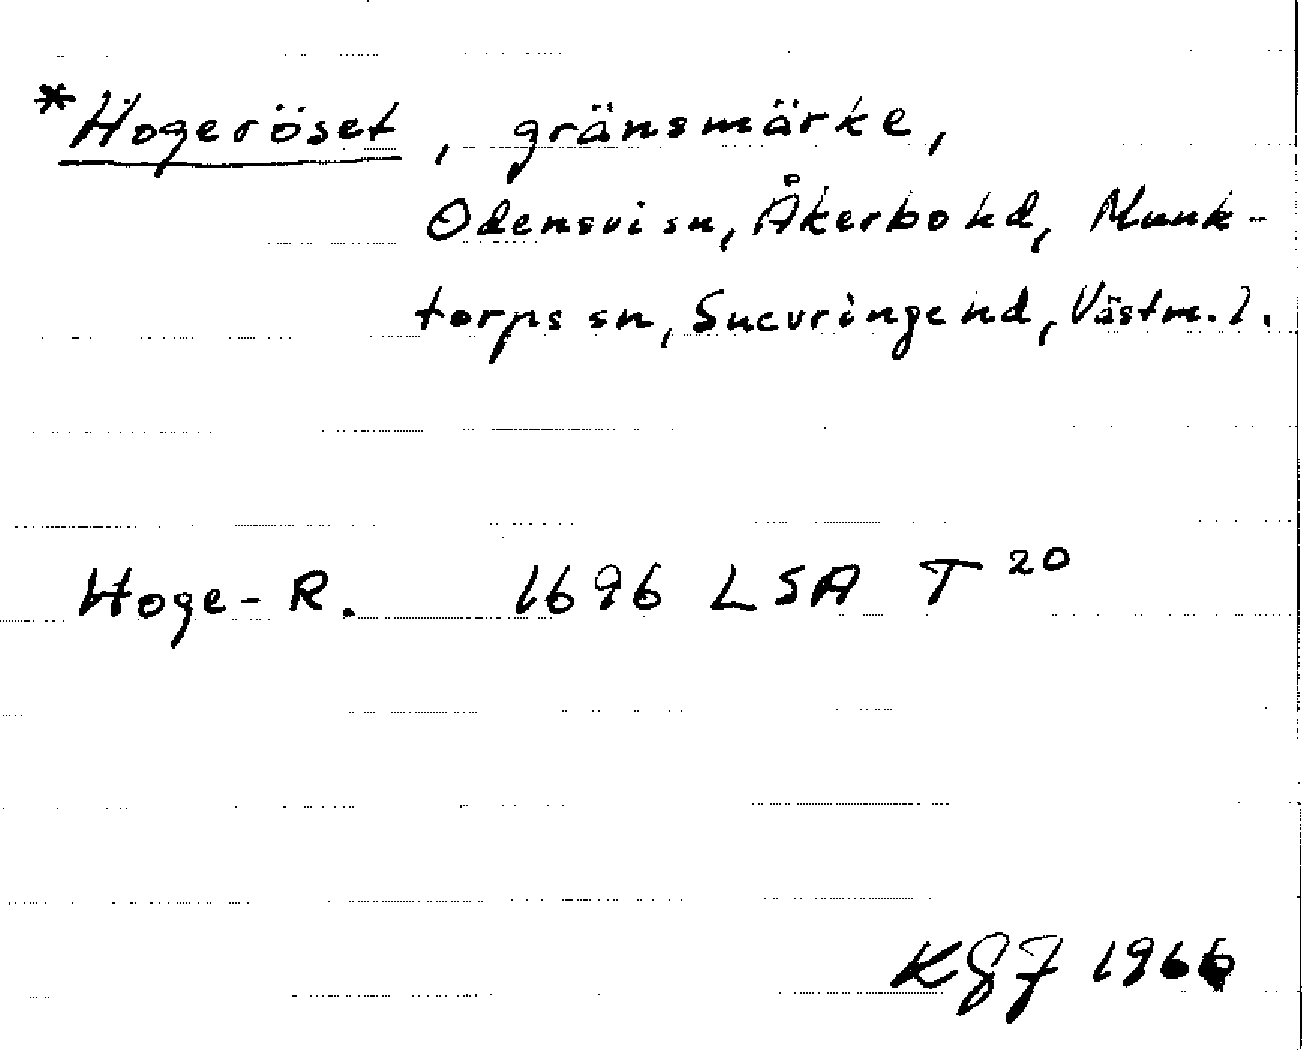 *Hogeröset, gränsmärke,
Odensvi sn, Åkerbo hd, Munk-
torps sn, Snevringe hd, Västm. l.
Hoge-R. 1696 LSA T 20
KGF 1966